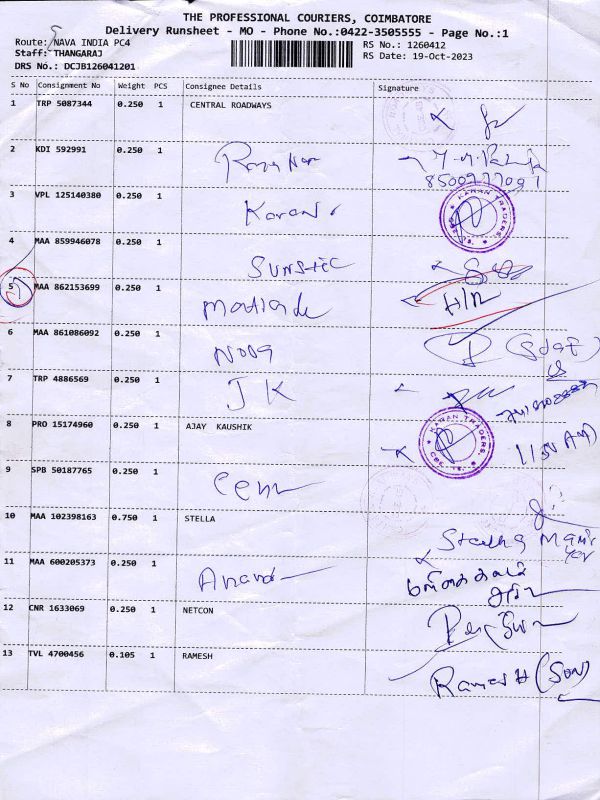 THE PROFESSIONAL COURIERS, COIMBATORE
Delivery Runsheet - MO - Phone No.:0422-3505555 - Page No.:1
Route: NAVA INDIA PC4
RS No.: 1260412
Staff: THANGARAJ
RS Date: 19-Oct-2023
DRS No.: DCJB126041201
S No Consignment No Weight PCS Consignee Details Signature
1 TRP 5087344 0.250 1 CENTRAL ROADWAYS
2 KDI 592991 0.250 1
8500977097
3 VPL 125140380 0.250 1 Karan
KARAN TRADERS
4 MAA 859946078 0.250 1 Sunstec
5 MAA 862153699 0.250 1
6 MAA 861086092 0.250 1
7 TRP 4886569 0.250 1 JK
8 PRO 15174960 0.250 1 AJAY KAUSHIK
KARAN TRADERS
9 SPB 50187765 0.250 1
10 MAA 102398163 0.750 1 STELLA
11 MAA 600205373 0.250 1 Anand
12 CNR 1633069 0.250 1 NETCON
13 TVL 4700456 0.105 1 RAMESH
Ramesh (SON)